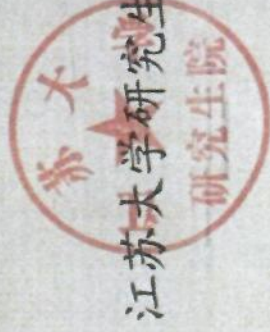 江苏大学研究生
苏大
研究生院